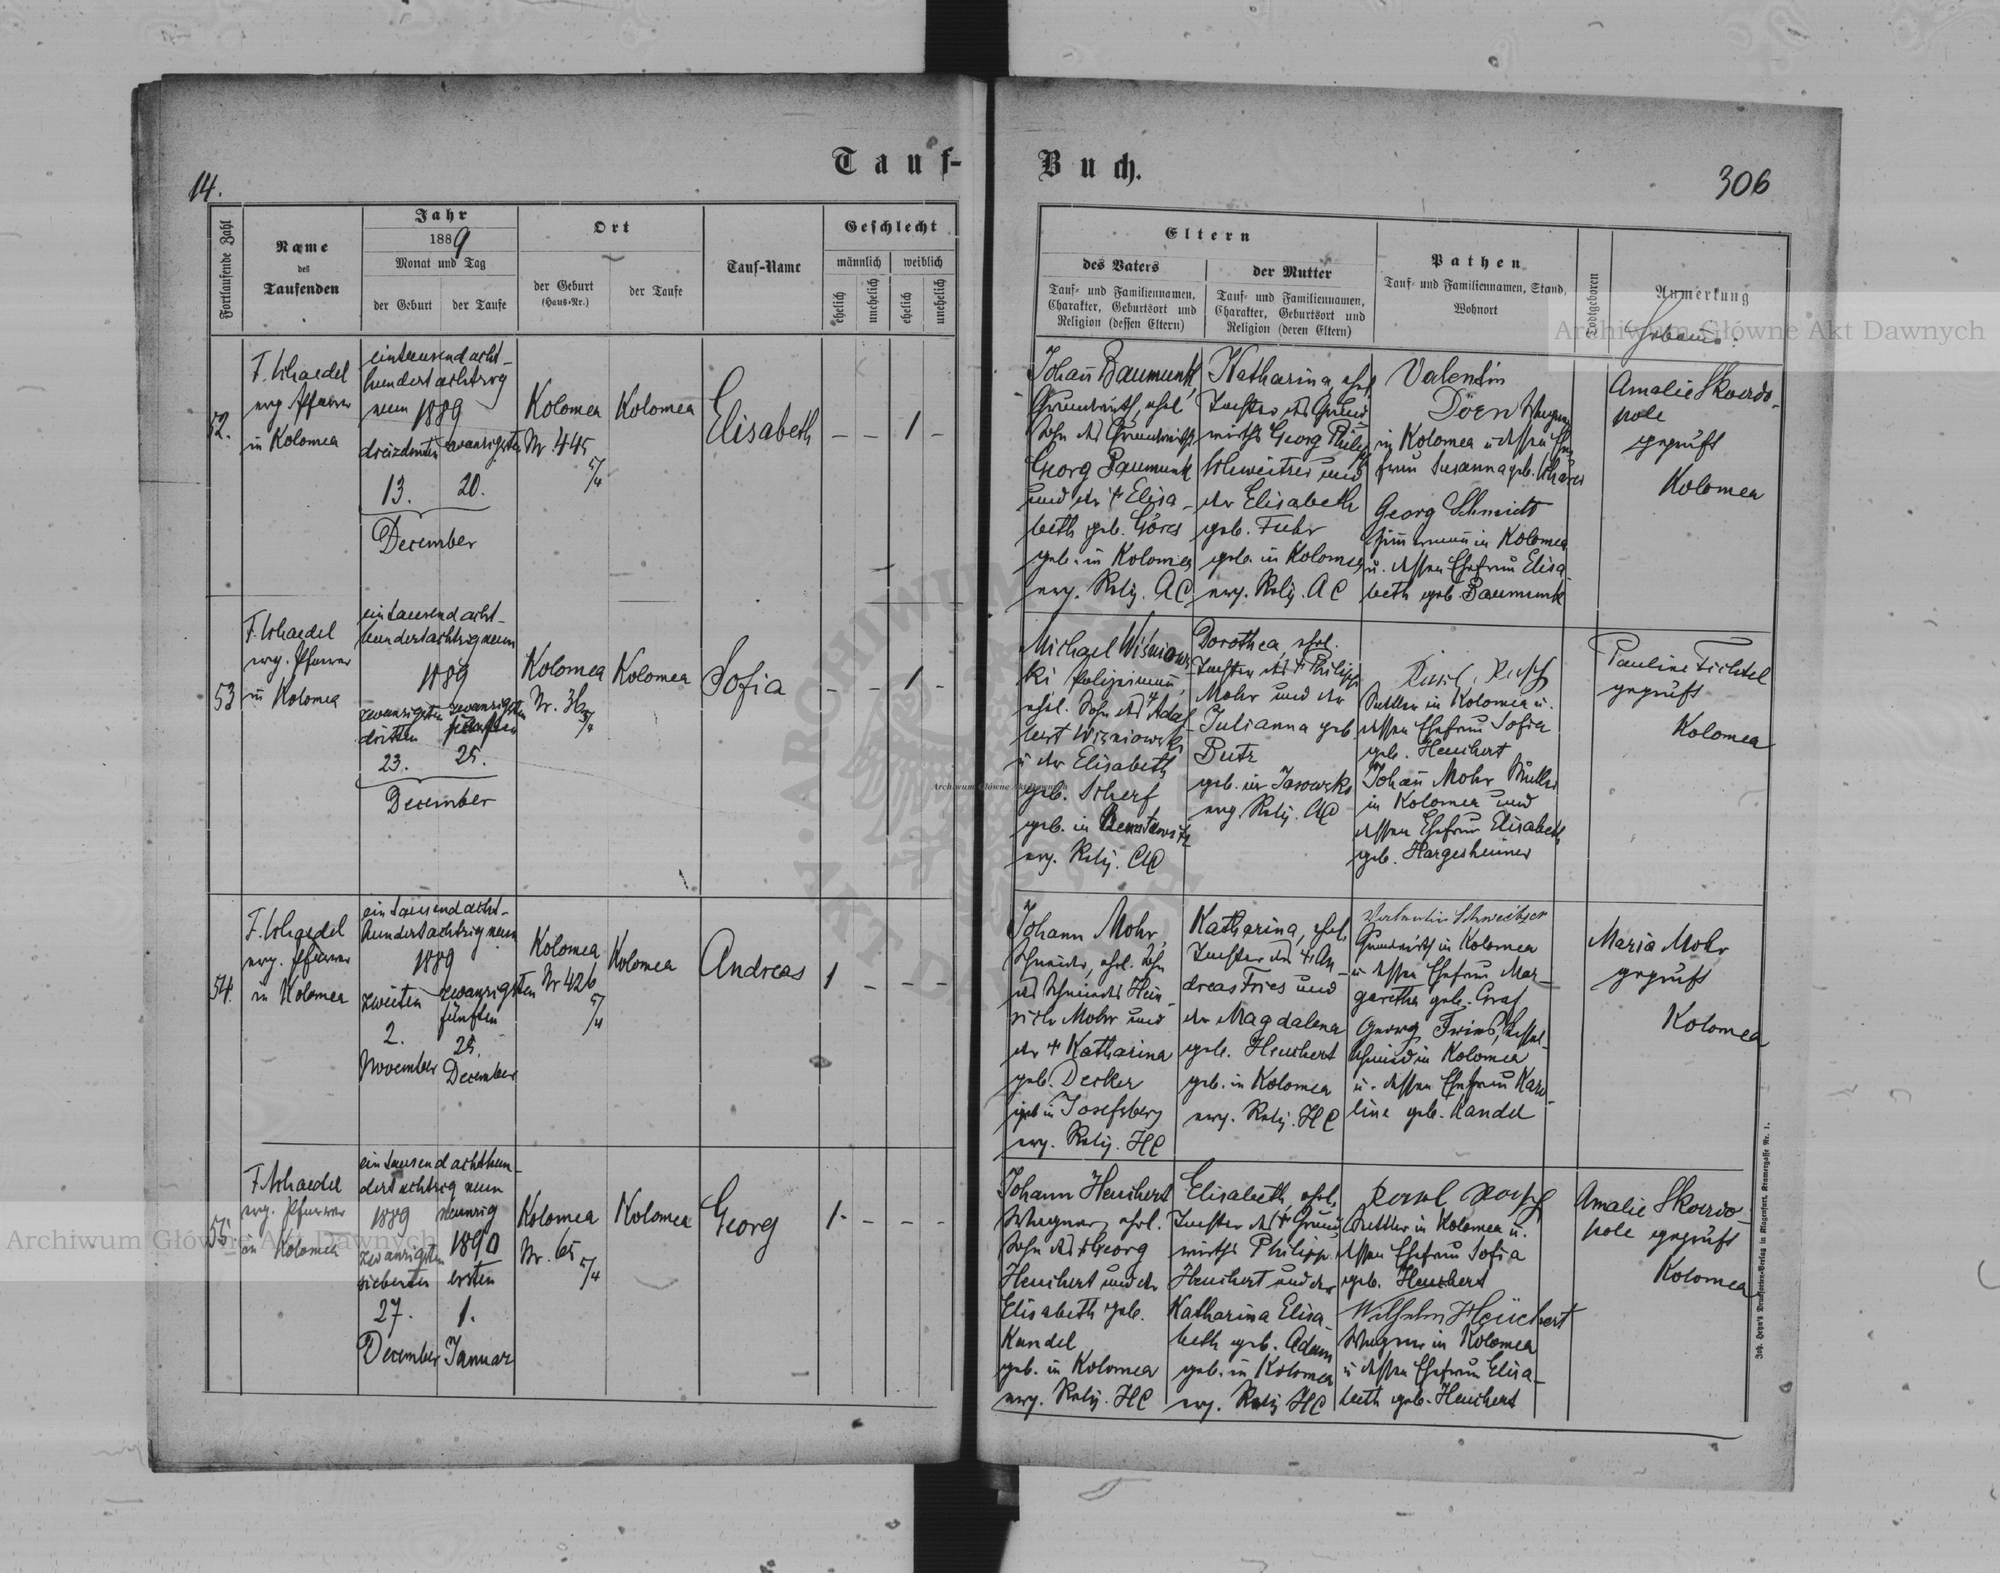 14.
Tauf-
Buch.
306
Fortlaufende Zahl
Name
des
Taufenden
Jahr
1889
Monat und Tag
der Geburt
der Taufe
Ort
der Geburt
(Haus-Nr.)
der Taufe
Tauf-Name
Geschlecht
männlich
weiblich
ehelich
unehelich
ehelich
unehelich
Eltern
des Vaters
Tauf- und Familiennamen,
Charakter, Geburtsort und
Religion (dessen Eltern)
der Mutter
Tauf- und Familiennamen,
Charakter, Geburtsort und
Religion (deren Eltern)
Pathen
Tauf- und Familiennamen, Stand,
Wohnort
Todtgeboren
Anmerkung
52.
F. Schaedel
evg. Pfarrer
in Kolomea
eintausend acht-
hundert achtzig
neun 1889
dreizehnten
13.
zwanzigsten
20.
December
Kolomea
Nr. 445
5/4
Kolomea
Elisabeth
– – 1 –
Johann Baumunk
Grundwirth, ehel.
Sohn des Grundwirths
Georg Baumunk
und der † Elisa-
beth geb. Göres
geb. in Kolomea
evg. Relig. AC
Katharina, ehel.
Tochter des Grund
wirths Georg Philipp
Schweitzer und
der Elisabeth
geb. Fuhr
geb. in Kolomea
evg. Relig. AC
Valentin
in Kolomea u dessen Ehe
frau Susanna geb.
Georg Schmidt
Zimmermann in Kolomea
u. dessen Ehefrau Elisa
beth geb. Baumunk
Amalie Skwirdo-
pole
geprüft
Kolomea
53
F. Schaedel
evg. Pfarrer
in Kolomea
eintausend acht-
hundertachtzigneun
1889
zwanzigsten
dritten
23.
zwanzigsten
fünften
25.
December
Kolomea
Nr. 36
5/4
Kolomea
Sofia
– – 1 –
Michael Wiśniows
ki Polizeimann,
ehel. Sohn des † Adal
bert Wiśniowski
u der Elisabeth
geb. Scherf
geb. in
evg. Relig. AC
Dorothea, ehel.
Tochter des † Philipp
Mohr und der
Julianna geb
Butz
geb. in Jasowska
evg. Relig. AC
Sattler in Kolomea u.
dessen Ehefrau Sofia
geb. Heuchert
Johann Mohr Müller
in Kolomea und
dessen Ehefrau Elisabeth
geb. Hargesheimer
Pauline Fichtel
geprüft
Kolomea
54.
F. Schaedel
evg. Pfarrer
in Kolomea
eintausend acht-
hundertachtzigneun
1889
zweiten
2.
November
zwanzigsten
fünften
25.
December
Kolomea
Nr 426
5/4
Kolomea
Andreas
1 – – –
Johann Mohr,
Schneider, ehel. Sohn
des Schmiedes Hein-
rich Mohr und
der † Katharina
geb. Decker
geb in Josefsberg
evg. Relig. HC
Katharina, ehel.
Tochter des † An-
dreas Fries und
der Magdalena
geb. Heuchert
geb. in Kolomea
evg. Relig. HC
Valentin Schweitzer
Grundwirth in Kolomea
u dessen Ehefrau Mar-
garetha geb. Graf
Georg Fries, Kessel-
schmied in Kolomea
u. dessen Ehefrau Karo-
line geb. Kandel
Maria Mohr
geprüft
Kolomea
55.
F. Schaedel
evg. Pfarrer
in Kolomea
eintausend achthun-
dert achtzig neun
1889
zwanzigsten
siebenten
27.
December
neunzig
1890
ersten
1.
Januar
Kolomea
Nr. 65
5/4
Kolomea
Georg
1. – – –
Johann Heuchert
Wagner, ehel.
Sohn des † Georg
Heuchert und der
Elisabeth geb.
Kandel
geb. in Kolomea
evg. Relig. HC
Elisabeth, ehel.
Tochter des † Grund
wirths Philipp
Heuchert und der
Katharina Elisa-
beth geb. Adam
geb. in Kolomea
evg. Relig HC
Sattler in Kolomea u.
dessen Ehefrau Sofia
geb. Heuchert
Wilhelm Heuchert
Wagner in Kolomea
u dessen Ehefrau Elisa-
beth geb. Heuchert
Amalie Skwirdo-
pole geprüft
Kolomea
Joh. Heyn's Drucksorten-Verlag in Klagenfurt, Kramergasse Nr. 1.
Archiwum Główne Akt Dawnych
Archiwum Główne Akt Dawnych
Archiwum Główne Akt Dawnych